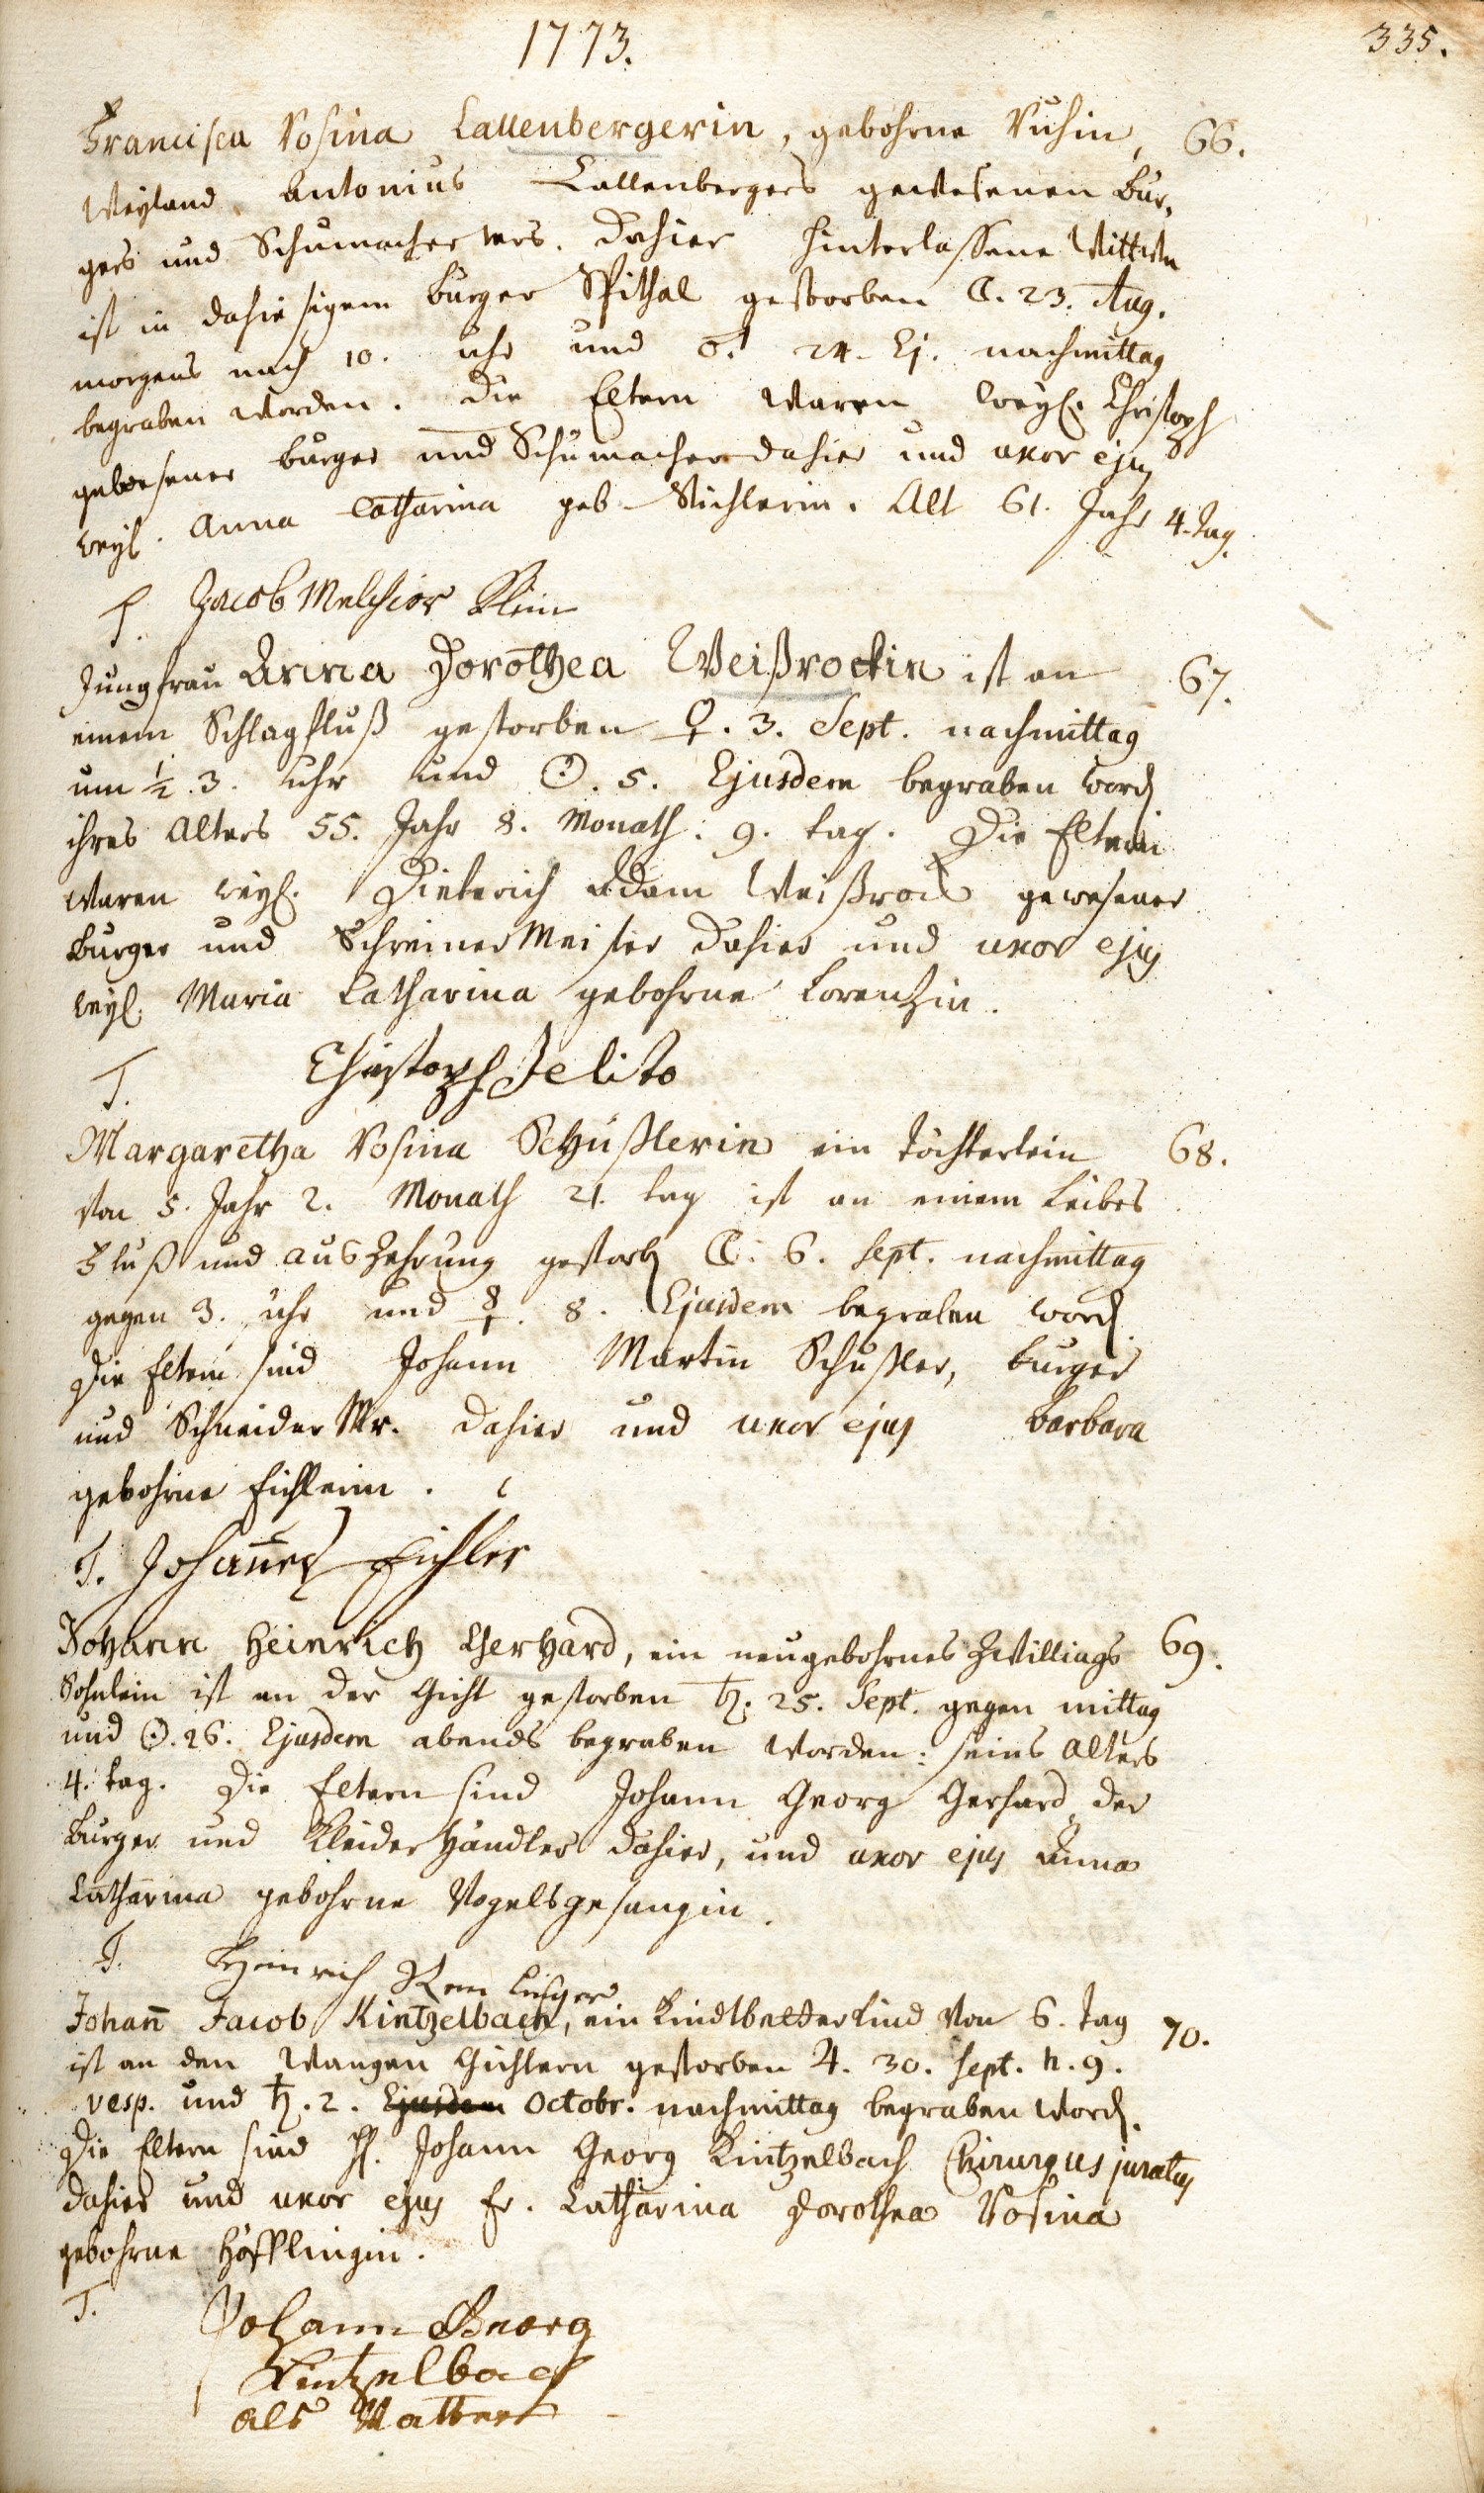 1773.
335.
Francisca Rosina Lallenbergerin, gebohrne Ruhin, 66.
Weyland Antonius Lallenbergers gewesenen Bur,
gers und Schumacher mrs. dahier hinterlassene Wittwe
ist in dahiesigem Burger Spithal gestorben ☾. 23. Aug.
morgens nach 10. uhr und ♂. 24. Ej. nachmittag
begraben worden. Die Eltern waren weyl. Christoph
gewesener burger und Schumacher dahier und uxor ejus
weyl. Anna Catharina geb. Stichlerin. Alt 61. Jahr 4. Tag.
T. Jacob Melchior Klein
Jungfrau Anna Dorothea Weißrockin ist an 67.
einem Schlagfluß gestorben ♀. 3. Sept. nachmittag
um ½. 3. uhr und ☉. 5. Ejusdem begraben word.
ihres Alters 55. Jahr 8. Monath. 9. tag. Die Eltern
waren weyl. Dieterich Adam Weißrock gewesener
Burger und Schreiner Meister dahier und uxor ejus
weyl. Maria Catharina gebohrne Lorentzin.
T. Christoph Jelito
Margaretha Rosina Schüßlerin ein Töchterlein 68.
von 5. Jahr 2. Monath 21. tag ist an einem Leibes
Fluß und auszehrung gestorb. ☾. 6. Sept. nachmittag
gegen 3. uhr und ☿. 8. Ejusdem begraben word.
Die Eltern sind Johann Martin Schüßler, burger
und Schneider Mr. dahier und uxor ejus Barbara
gebohrne Eichlerin.
T. Johannes Eichler
Johann Heinrich Gerhard, ein neugebohrnes Zwillings 69.
Sohnlein ist an der Gicht gestorben ♄. 25. Sept. gegen mittag
und ☉. 26. Ejusdem abends begraben worden: seines Alters
4. tag. Die Eltern sind Johann Georg Gerhard der
Burger und Kleider händler dahier, und uxor ejus Anna
Catharina gebohrne Vogelsgesangin.
T. Heinrich
Johann Jacob Kintzelbach, ein Kindbetterkind von 6. Tag 70.
ist an den Wangen Gichtern gestorben ♃. 30. Sept. h. 9.
vesp. und ♄. 2. Ejusdem Octobr. nachmittag begraben word.
Die Eltern sind H. Johann Georg Kintzelbach Chirurgus juratus
dahier und uxor ejus Fr. Catharina Dorothea Rosina
gebohrne Höfflingin.
T. Johann Georg
Kintzelbach
als Vatter